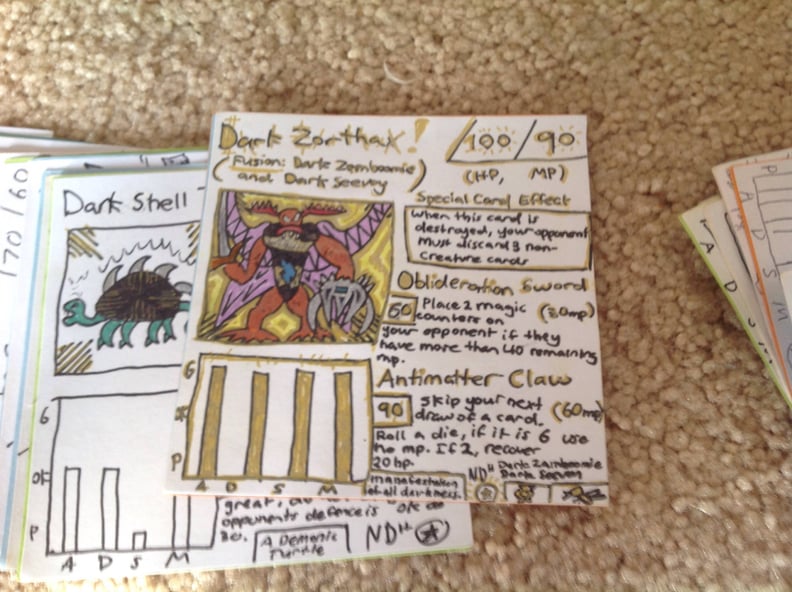 Dark Zorthax!
/100/90
(Fusion: Dark Zamboomie
and Dark Seevoy)
(HP, MP)
Special Card Effect
When this card is
destroyed, your opponent
must discard 3 non-
creature cards
Oblideration Sword
50 Place 2 magic (30mp)
counters on
your opponent if they
have more than 40 remaining
mp.
Antimatter Claw
90 Skip your next (60mp)
draw of a card.
Roll a die, if it is 6 use
no mp. If 2, recover
20 hp.
G
OK
P
A D S M
manafestation
of all darkness.
ND" Dark Zamboomie
Dark Seevoy
Dark Shell
G
OK
P
A D S M
great,
opponents defence is ok
30.
A Demonic
Turtle
ND"
170/60
P
A D S M
A D